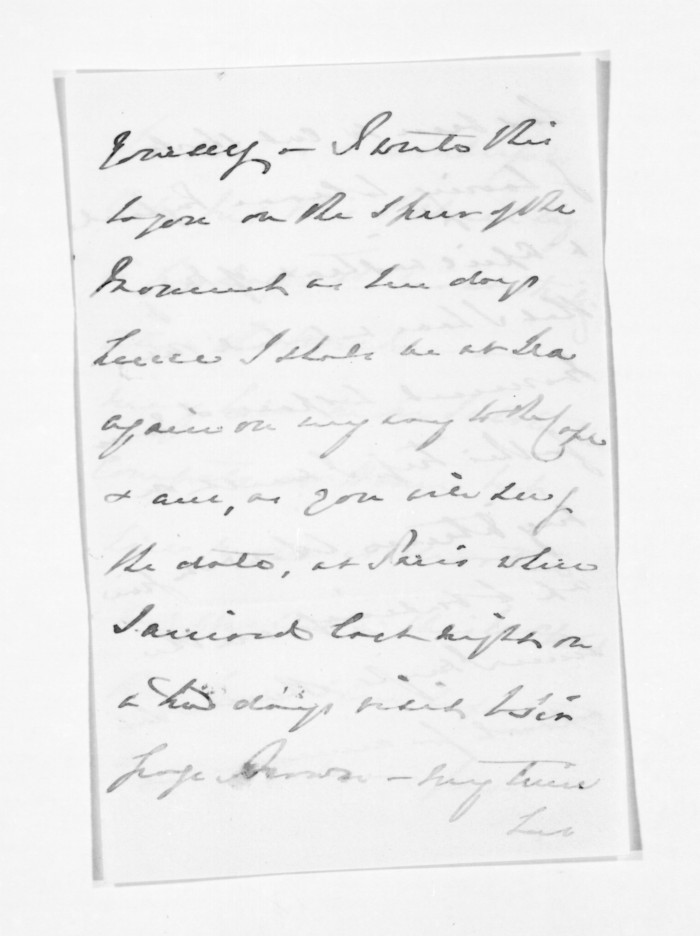 - I write this
to you on the spur of the
moment as two days
hence I shall be at sea
again on my way to the Cape
& am, as you will see by
the date, at Paris where
I arrived last night on
a two days visit to Sir
George Brown - my time
has